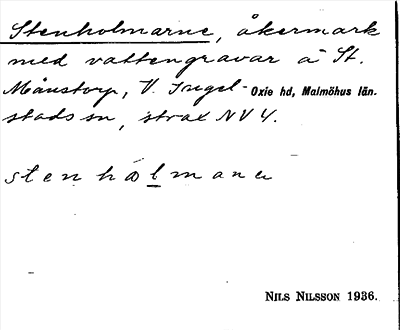 Stenholmarne, åkermark
med vattengravar å St.
Månstorp, V. Ingel- Oxie hd, Malmöhus län.
stads sn, strax NV 4.
stenholmane
NILS NILSSON 1936.